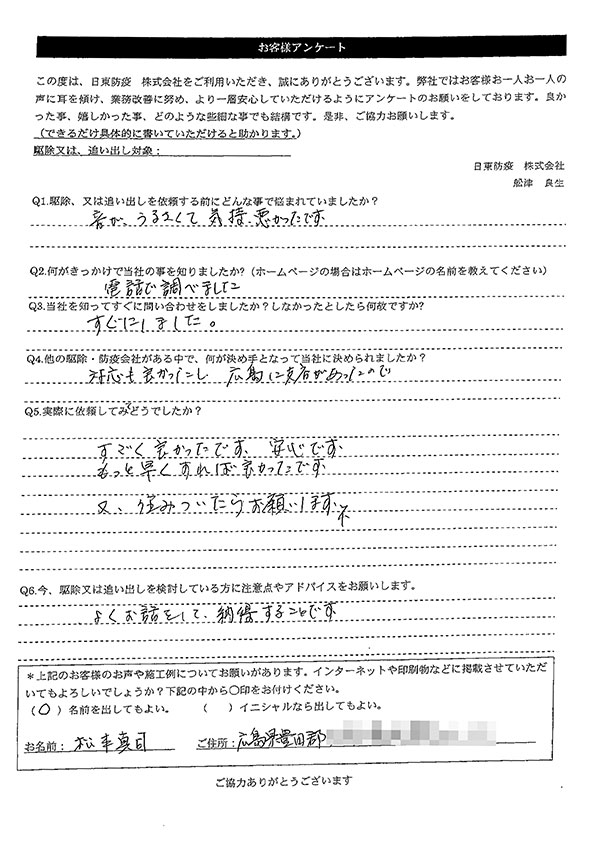 お客様アンケート
この度は、日東防疫 株式会社をご利用いただき、誠にありがとうございます。弊社ではお客様お一人お一人の
声に耳を傾け、業務改善に努め、より一層安心していただけるようにアンケートのお願いをしております。良か
った事、嬉しかった事、どのような些細な事でも結構です。是非、ご協力お願いします。
（できるだけ具体的に書いていただけると助かります。）
駆除又は、追い出し対象：
日東防疫 株式会社
舩津 良生
Q1.駆除、又は追い出しを依頼する前にどんな事で悩まれていましたか？
音が、うるさくて 気持 悪かったです
Q2.何がきっかけで当社の事を知りましたか?（ホームページの場合はホームページの名前を教えてください）
電話で調べました
Q3.当社を知ってすぐに問い合わせをしましたか？しなかったとしたら何故ですか?
すぐにしました。
Q4.他の駆除・防疫会社がある中で、何が決め手となって当社に決められましたか？
対応も良かったし 広島に支店があったので
Q5.実際に依頼してみてどうでしたか？
すごく良かったです、安心です、
もっと早くすれば良かったです
又、住みついたらお願いします、
Q6.今、駆除又は追い出しを検討している方に注意点やアドバイスをお願いします。
よくお話をして、納得することです
＊上記のお客様のお声や施工例についてお願いがあります。インターネットや印刷物などに掲載させていただ
いてもよろしいでしょうか？下記の中から〇印をお付けください。
（〇）名前を出してもよい。 （ ）イニシャルなら出してもよい。
お名前： 松本真司 ご住所： 広島県豊田郡
ご協力ありがとうございます